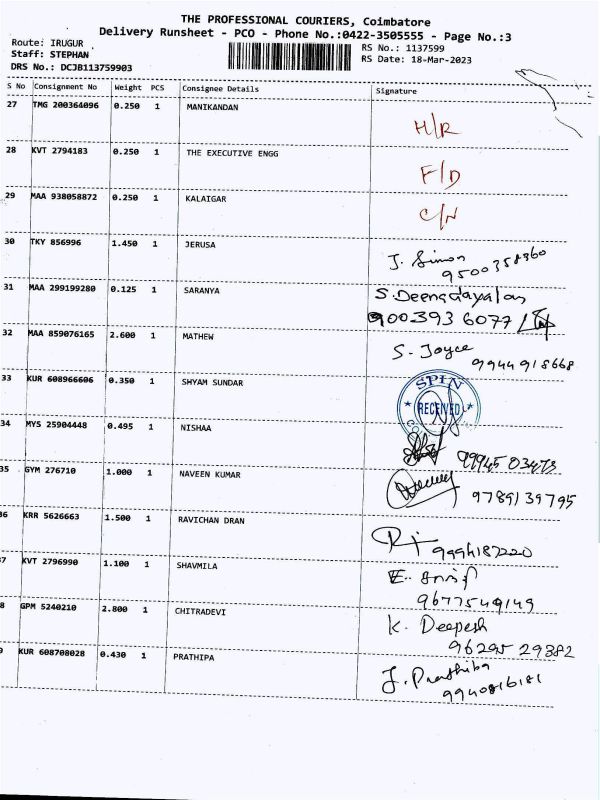 THE PROFESSIONAL COURIERS, Coimbatore
Delivery Runsheet - PCO - Phone No.:0422-3505555 - Page No.:3
Route: IRUGUR
Staff: STEPHAN
DRS No.: DCJB113759903
RS No.: 1137599
RS Date: 18-Mar-2023
S No Consignment No Weight PCS Consignee Details Signature
27 TMG 200364096 0.250 1 MANIKANDAN H/R
28 KVT 2794183 0.250 1 THE EXECUTIVE ENGG F/D
29 MAA 938058872 0.250 1 KALAIGAR C/N
30 TKY 856996 1.450 1 JERUSA J. Simon
9500358360
31 MAA 299199280 0.125 1 SARANYA S.Deenadayalan
9003936077
32 MAA 859076165 2.600 1 MATHEW S. Joyce
9944918668
33 KUR 608966606 0.350 1 SHYAM SUNDAR SPIN
RECEIVED
34 MYS 25904448 0.495 1 NISHAA 99945 03473
35 GYM 276710 1.000 1 NAVEEN KUMAR 9789139795
36 KRR 5626663 1.500 1 RAVICHAN DRAN 9994187220
7 KVT 2796990 1.100 1 SHAVMILA E.
9677549149
8 GPM 5240210 2.800 1 CHITRADEVI K. Deepesh
96295 29382
9 KUR 608708028 0.430 1 PRATHIPA J. Prathiba
9940816181